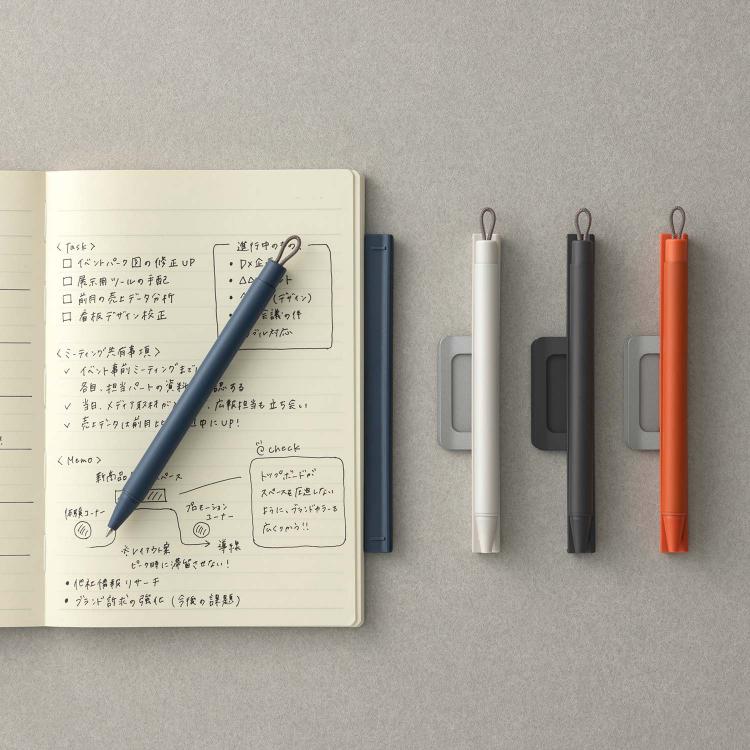 <Task>
□ イベントパーク図の修正UP
□ 展示用ツールの手配
□ 前月の売上データ分析
□ 看板デザイン校正
進行中のもの
• DX企
• △△ ント
• (デザイン)
• 会議の件
対応
<ミーティング共有事項>
✓ イベント事前ミーティングまで
各自、担当パートの資料 認する
✓ 当日、メディア取材が 、広報担当も立ち会い
✓ 売上データは前月 中にUP!
<Memo>
新商品 スペース
体験コーナー
プロモーション
コーナー
※レイアウト案
→ 導線
ピーク時に滞留させない!
@check
トップボードが
スペースを圧迫しない
ように、ブランドカラーを
広くりつう!!
• 他社情報リサーチ
• ブランド訴求の強化 (今後の課題)